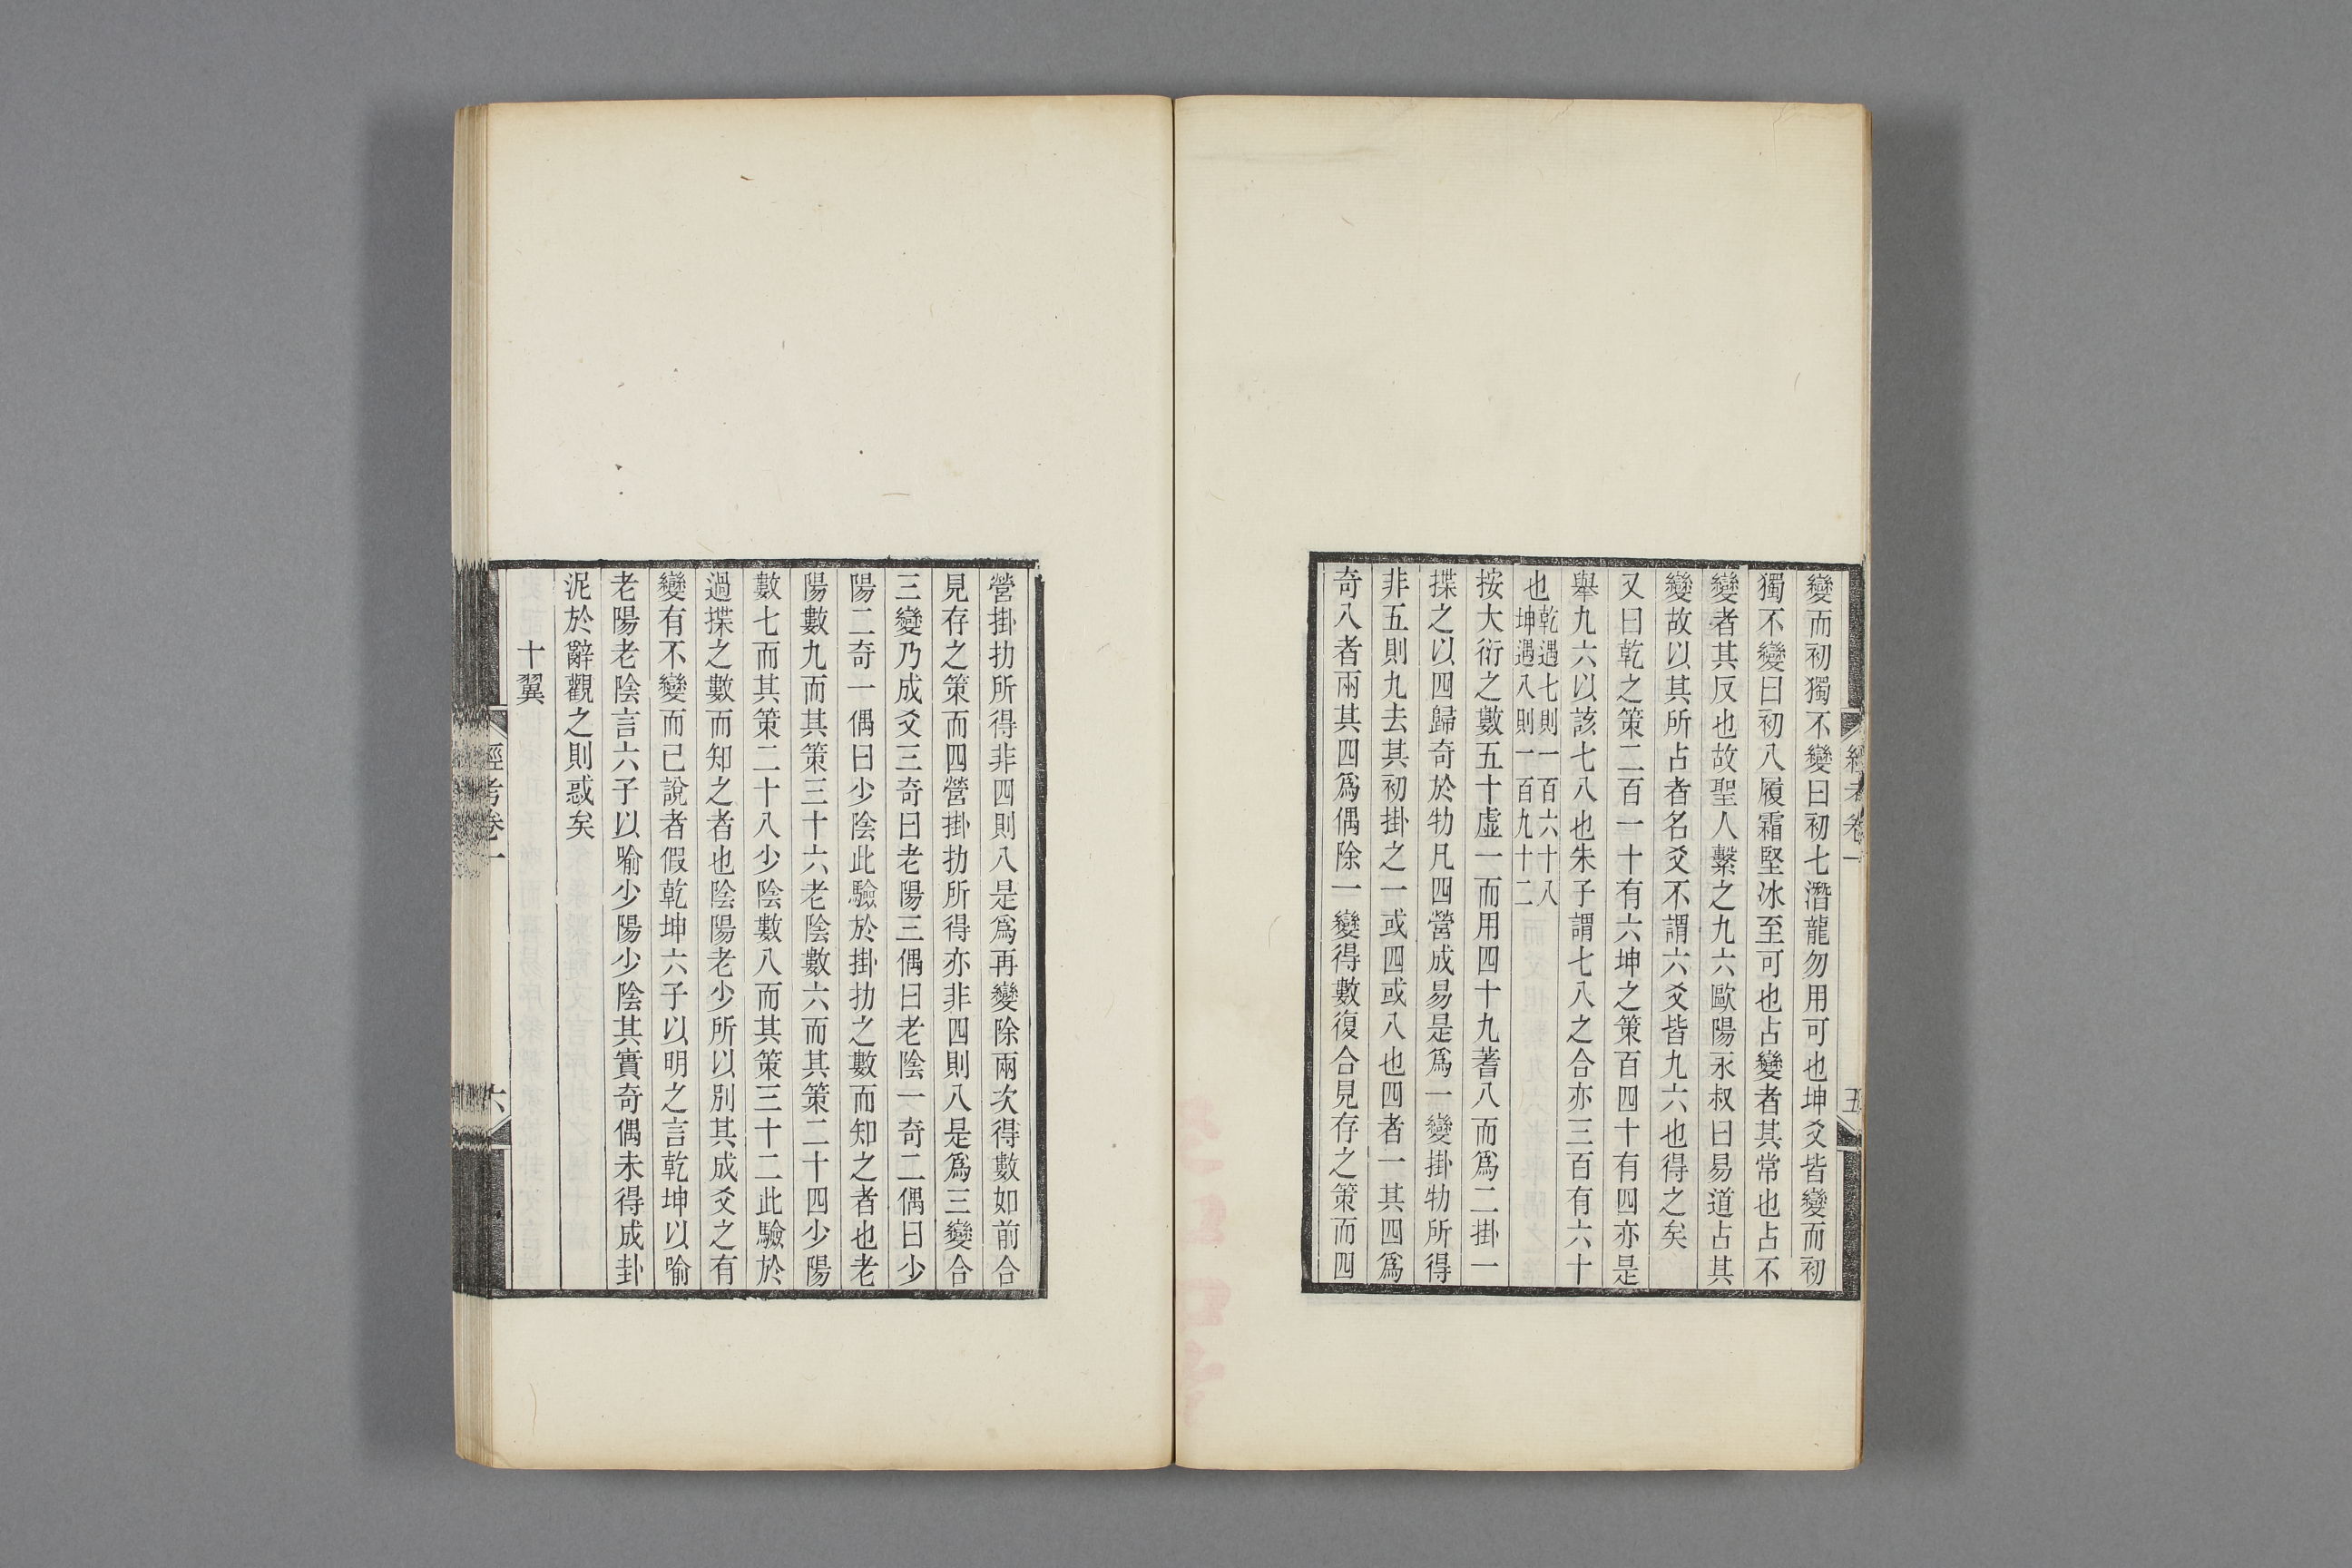 變而初獨不變曰初七潛龍勿用可也坤爻皆變而初
獨不變曰初八履霜堅冰至可也占變者其常也占不
變者其反也故聖人繫之九六歐陽永叔曰易道占其
變故以其所占者名爻不謂六爻皆九六也得之矣
又曰乾之策二百一十有六坤之策百四十有四亦是
舉九六以該七八也朱子謂七八之合亦三百有六十
也乾遇七則一百六十八
坤遇八則一百九十二
按大衍之數五十虛一而用四十九蓍八而為二掛一
揲之以四歸奇於扐凡四營成易是為一變掛扐所得
非五則九去其初掛之一或四或八也四者一其四為
奇八者兩其四為偶除一變得數復合見存之策而四
經考卷一
五
營掛扐所得非四則八是為再變除兩次得數如前合
見存之策而四營掛扐所得亦非四則八是為三變合
三變乃成爻三奇曰老陽三偶曰老陰一奇二偶曰少
陽二奇一偶曰少陰此驗於掛扐之數而知之者也老
陽數九而其策三十六老陰數六而其策二十四少陽
數七而其策二十八少陰數八而其策三十二此驗於
過揲之數而知之者也陰陽老少所以別其成爻之有
變有不變而已說者假乾坤六子以明之言乾坤以喻
老陽老陰言六子以喻少陽少陰其實奇偶未得成卦
泥於辭觀之則惑矣
十翼
經考卷一
六